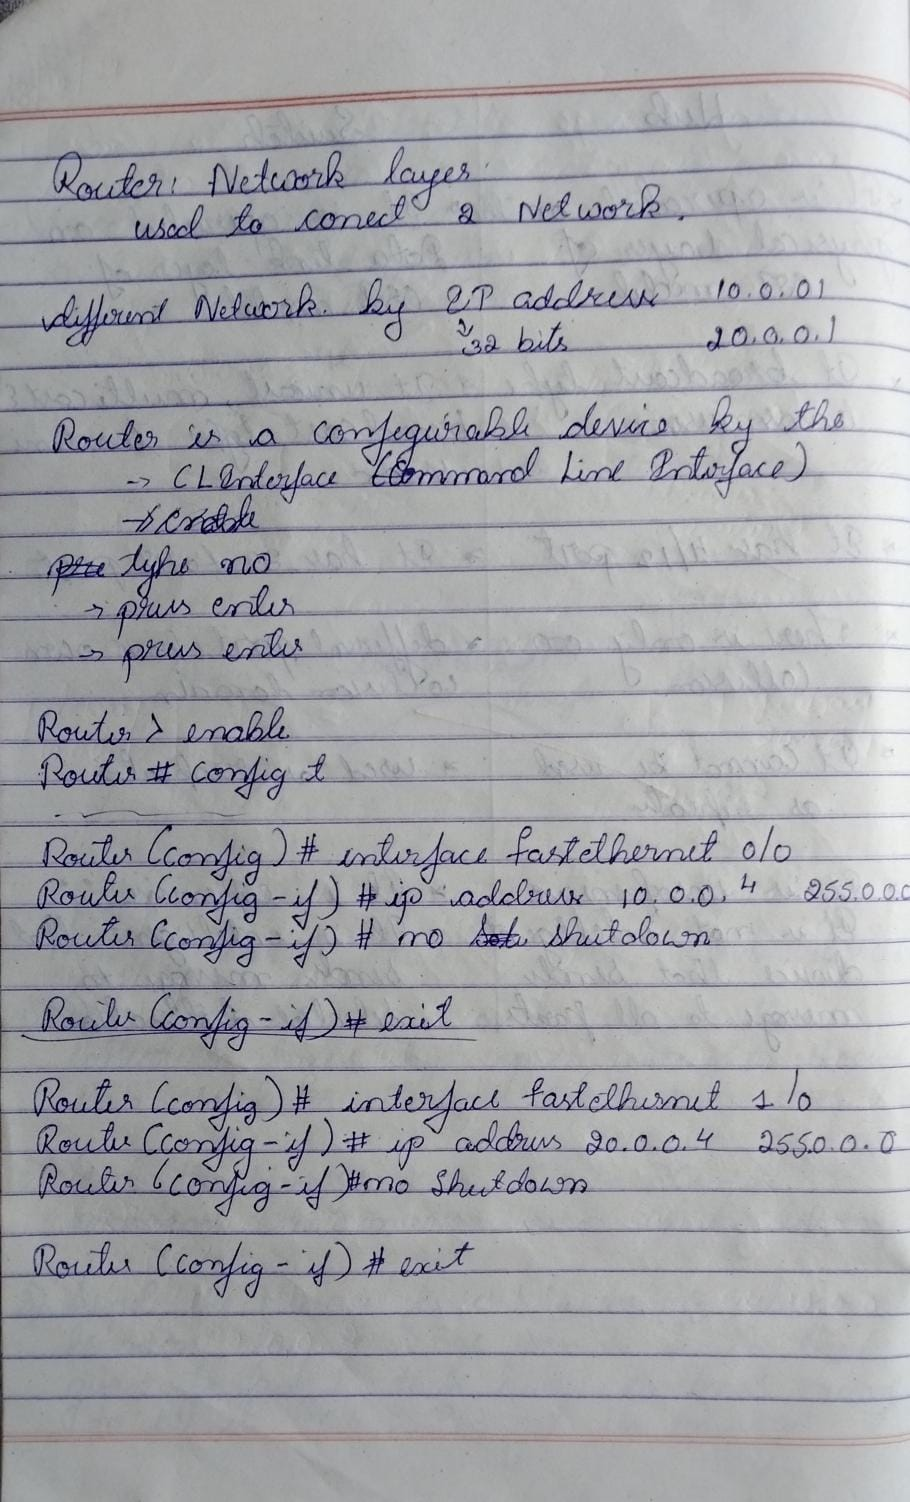 Router: Network layer.
used to conect 2 Network.
different Network. by IP address 10.0.01
32 bits 20.0.0.1
Router is a configurable device by the
→ CLInterface (Command Line Interface)
→ enable
type no
→ press enter
→ press enter
Router > enable
Router # config t
Router (config) # interface fastethernet 0/0
Router (config-if) # ip address 10.0.0.4 255.0.0.0
Router (config-if) # no shutdown
Router (config-if) # exit
Router (config) # interface fastethernet 1/0
Router (config-if) # ip address 20.0.0.4 255.0.0.0
Router (config-if) #no shutdown
Router (config-if) # exit